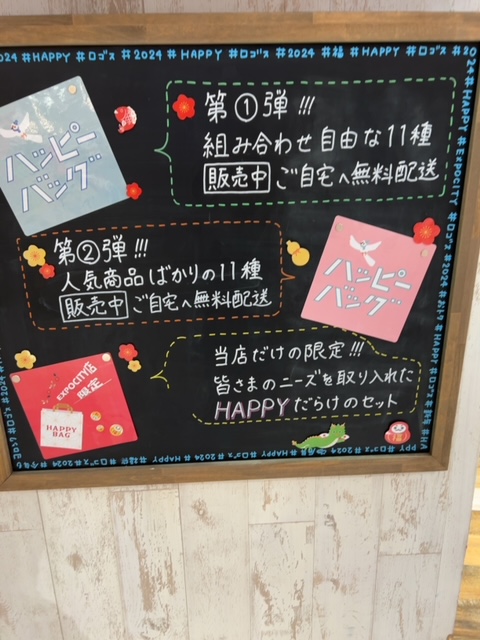 024 #HAPPY #ロゴス #2024 # HAPPY #ロゴス #2024 #福 # HAPPY #ロゴス #20
24 # HAPPY # EXPOCITY #ロゴス #2024
ハッピー
バッグ
第①弾!!!
組み合わせ自由な11種
販売中 ご自宅へ無料配送
第②弾!!!
人気商品ばかりの11種
販売中 ご自宅へ無料配送
ハッピー
バッグ
EXPOCITY店
限定
HAPPY
BAG
当店だけの限定!!!
皆さまのニーズを取り入れた
HAPPYだらけのセット
福